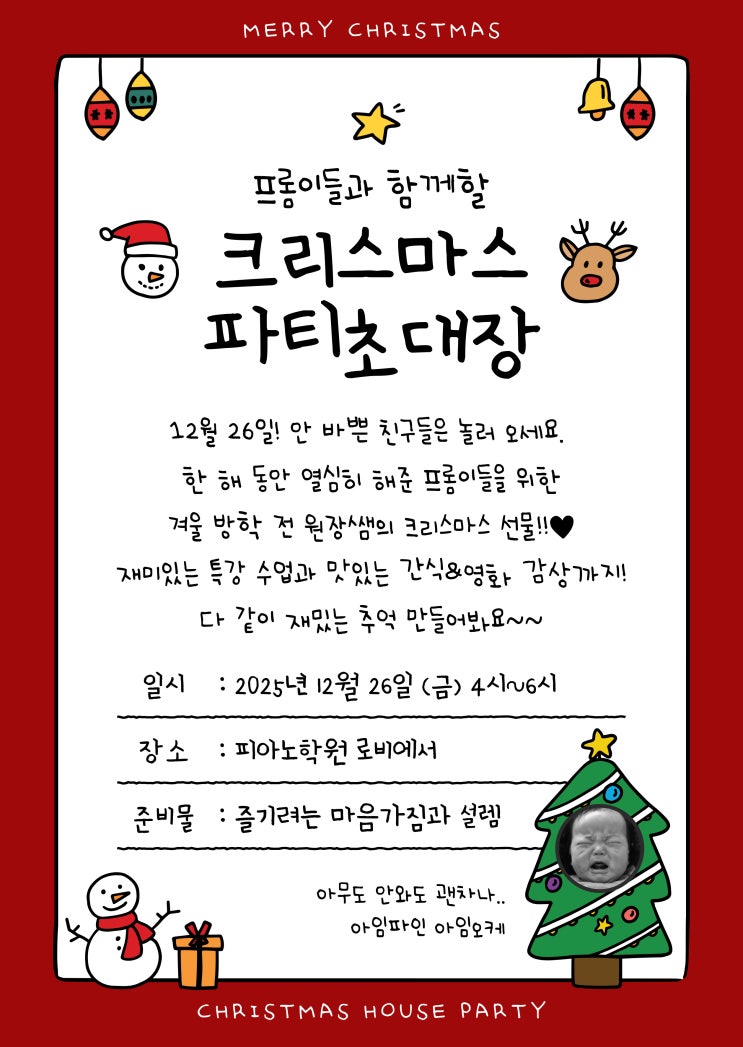 MERRY CHRISTMAS
프롬이들과 함께할
크리스마스
파티초대장
12월 26일! 안 바쁜 친구들은 놀러 오세요.
한 해 동안 열심히 해준 프롬이들을 위한
겨울 방학 전 원장쌤의 크리스마스 선물!!♥
재미있는 특강 수업과 맛있는 간식&영화 감상까지!
다 같이 재밌는 추억 만들어봐요~~
일시 : 2025년 12월 26일 (금) 4시~6시
장소 : 피아노학원 로비에서
준비물 : 즐기려는 마음가짐과 설렘
아무도 안와도 괜차나..
아임파인 아임오케
CHRISTMAS HOUSE PARTY